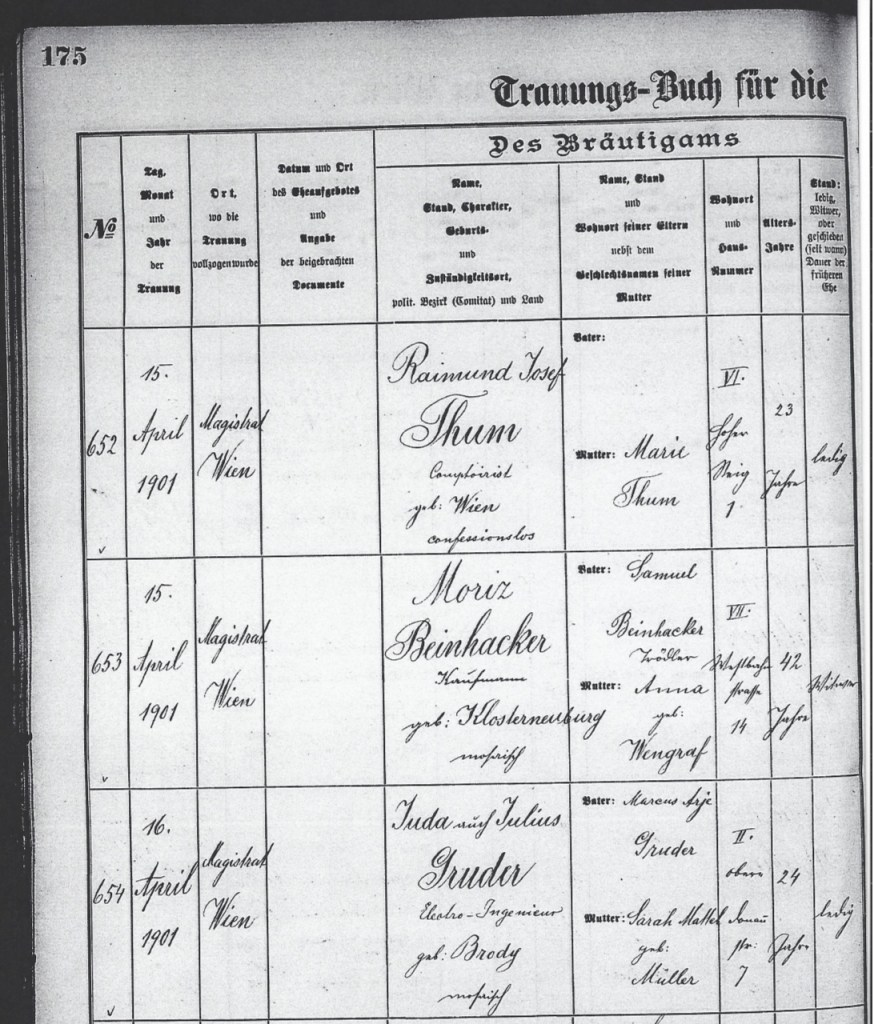 175
Trauungs-Buch für die
Des Bräutigams
№
Tag,
Monat
und
Jahr
der
Trauung
Ort,
wo die
Trauung
vollzogen wurde
Datum und Ort
des Eheaufgebotes
und
Angabe
der beigebrachten
Documente
Name,
Stand, Charakter,
Geburts-
und
Zuständigkeitsort,
polit. Bezirk (Comitat) und Land
Name, Stand
und
Wohnort seiner Eltern
nebst dem
Geschlechtsnamen seiner
Mutter
Wohnort
und
Haus-
Nummer
Alters-
Jahre
Stand:
ledig,
Witwer,
oder
geschieden
(seit wann)
Dauer der
früheren
Ehe
652
15.
April
1901
Magistrat
Wien
Raimund Josef
Thum
Comptoirist
geb: Wien
confessionslos
Vater:
Mutter: Marie
Thum
VI.
Hoher
Steig
1
23
Jahre
ledig
653
15.
April
1901
Magistrat
Wien
Moriz
Beinhacker
Kaufmann
geb: Klosterneuburg
mosaisch
Vater: Samuel
Beinhacker
Trödler
Mutter: Anna
geb:
Wengraf
VII.
Westbahn
strasse
14
42
Jahre
Witwer
654
16.
April
1901
Magistrat
Wien
Juda auch Julius
Gruder
Electro-Ingenieur
geb: Brody
mosaisch
Vater: Marcus Arje
Gruder
Mutter: Sarah Mattel
geb:
Müller
II.
obere
Donau
str:
7
24
Jahre
ledig